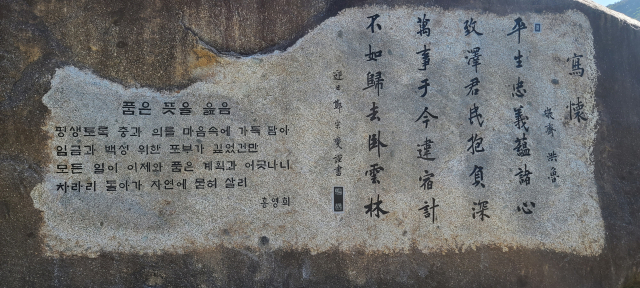 寫懷
敬齋 洪魯
平生忠義蘊諸心
致澤君民抱負深
萬事于今違宿計
不如歸去卧雲林
迎日 鄭宗燮 謹書
품은 뜻을 읊음
평생토록 충과 의를 마음속에 가득 담아
임금과 백성 위한 포부가 깊었건만
모든 일이 이제와 품은 계획과 어긋나니
차라리 돌아가 자연에 묻혀 살리
홍영희